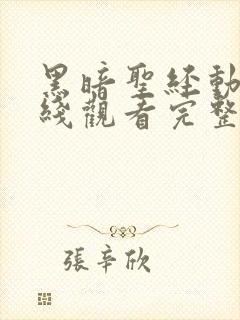 黑暗聖經動
綫觀看完整
張辛欣